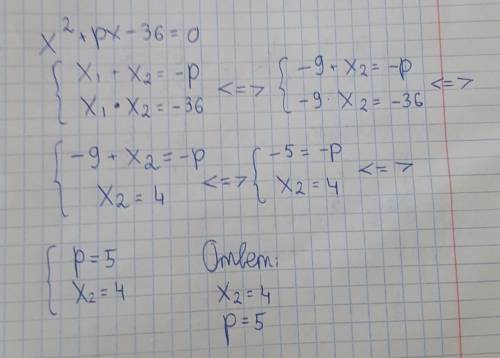 x² + px - 36 = 0
{ x₁ + x₂ = -p
x₁ · x₂ = -36 <=> { -9 + x₂ = -p
-9 · x₂ = -36 <=>
{ -9 + x₂ = -p
x₂ = 4 <=> { -5 = -p
x₂ = 4 <=>
{ p = 5
x₂ = 4
Ответ:
x₂ = 4
p = 5